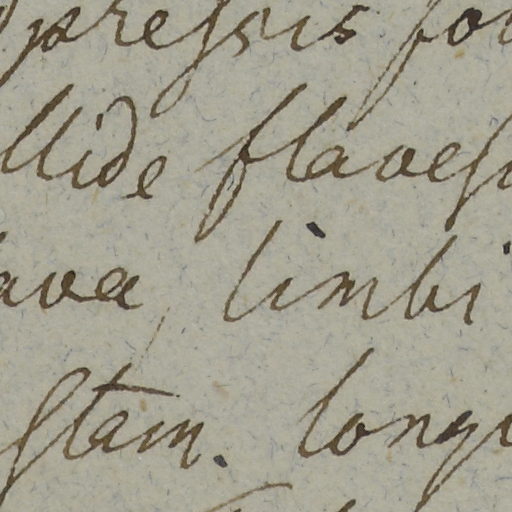 pressis fo
llide flaves
ava, limbi
Stam. long